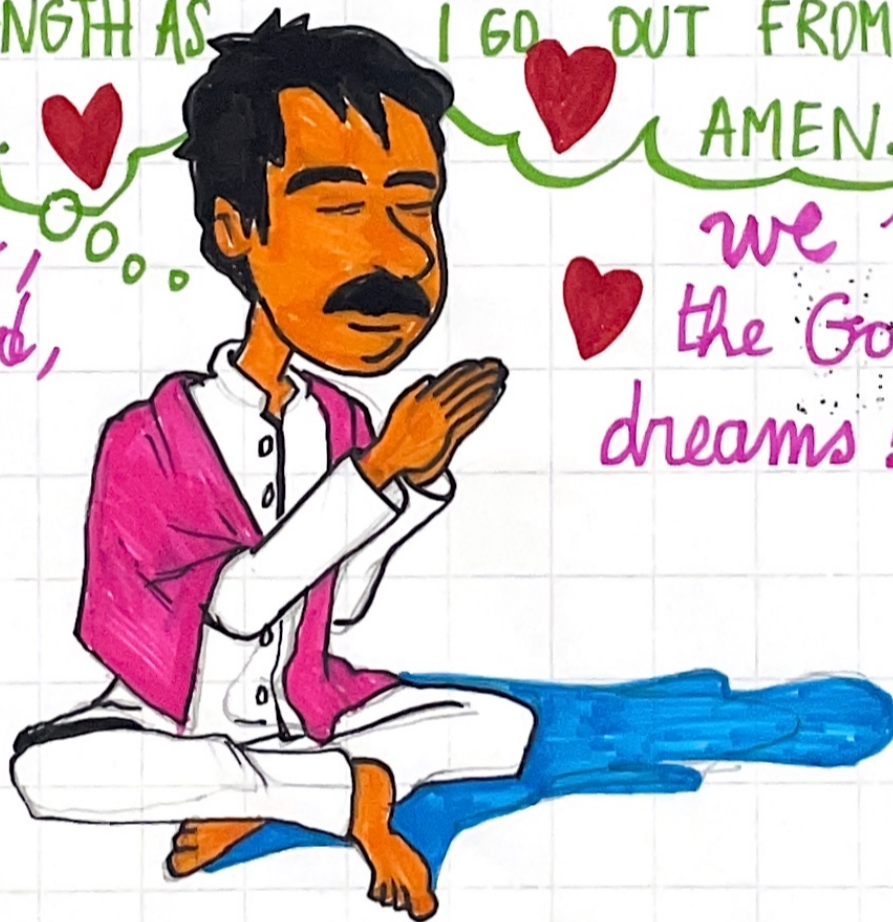 NGTH AS I GO OUT FROM
AMEN.
we
the Go
dreams